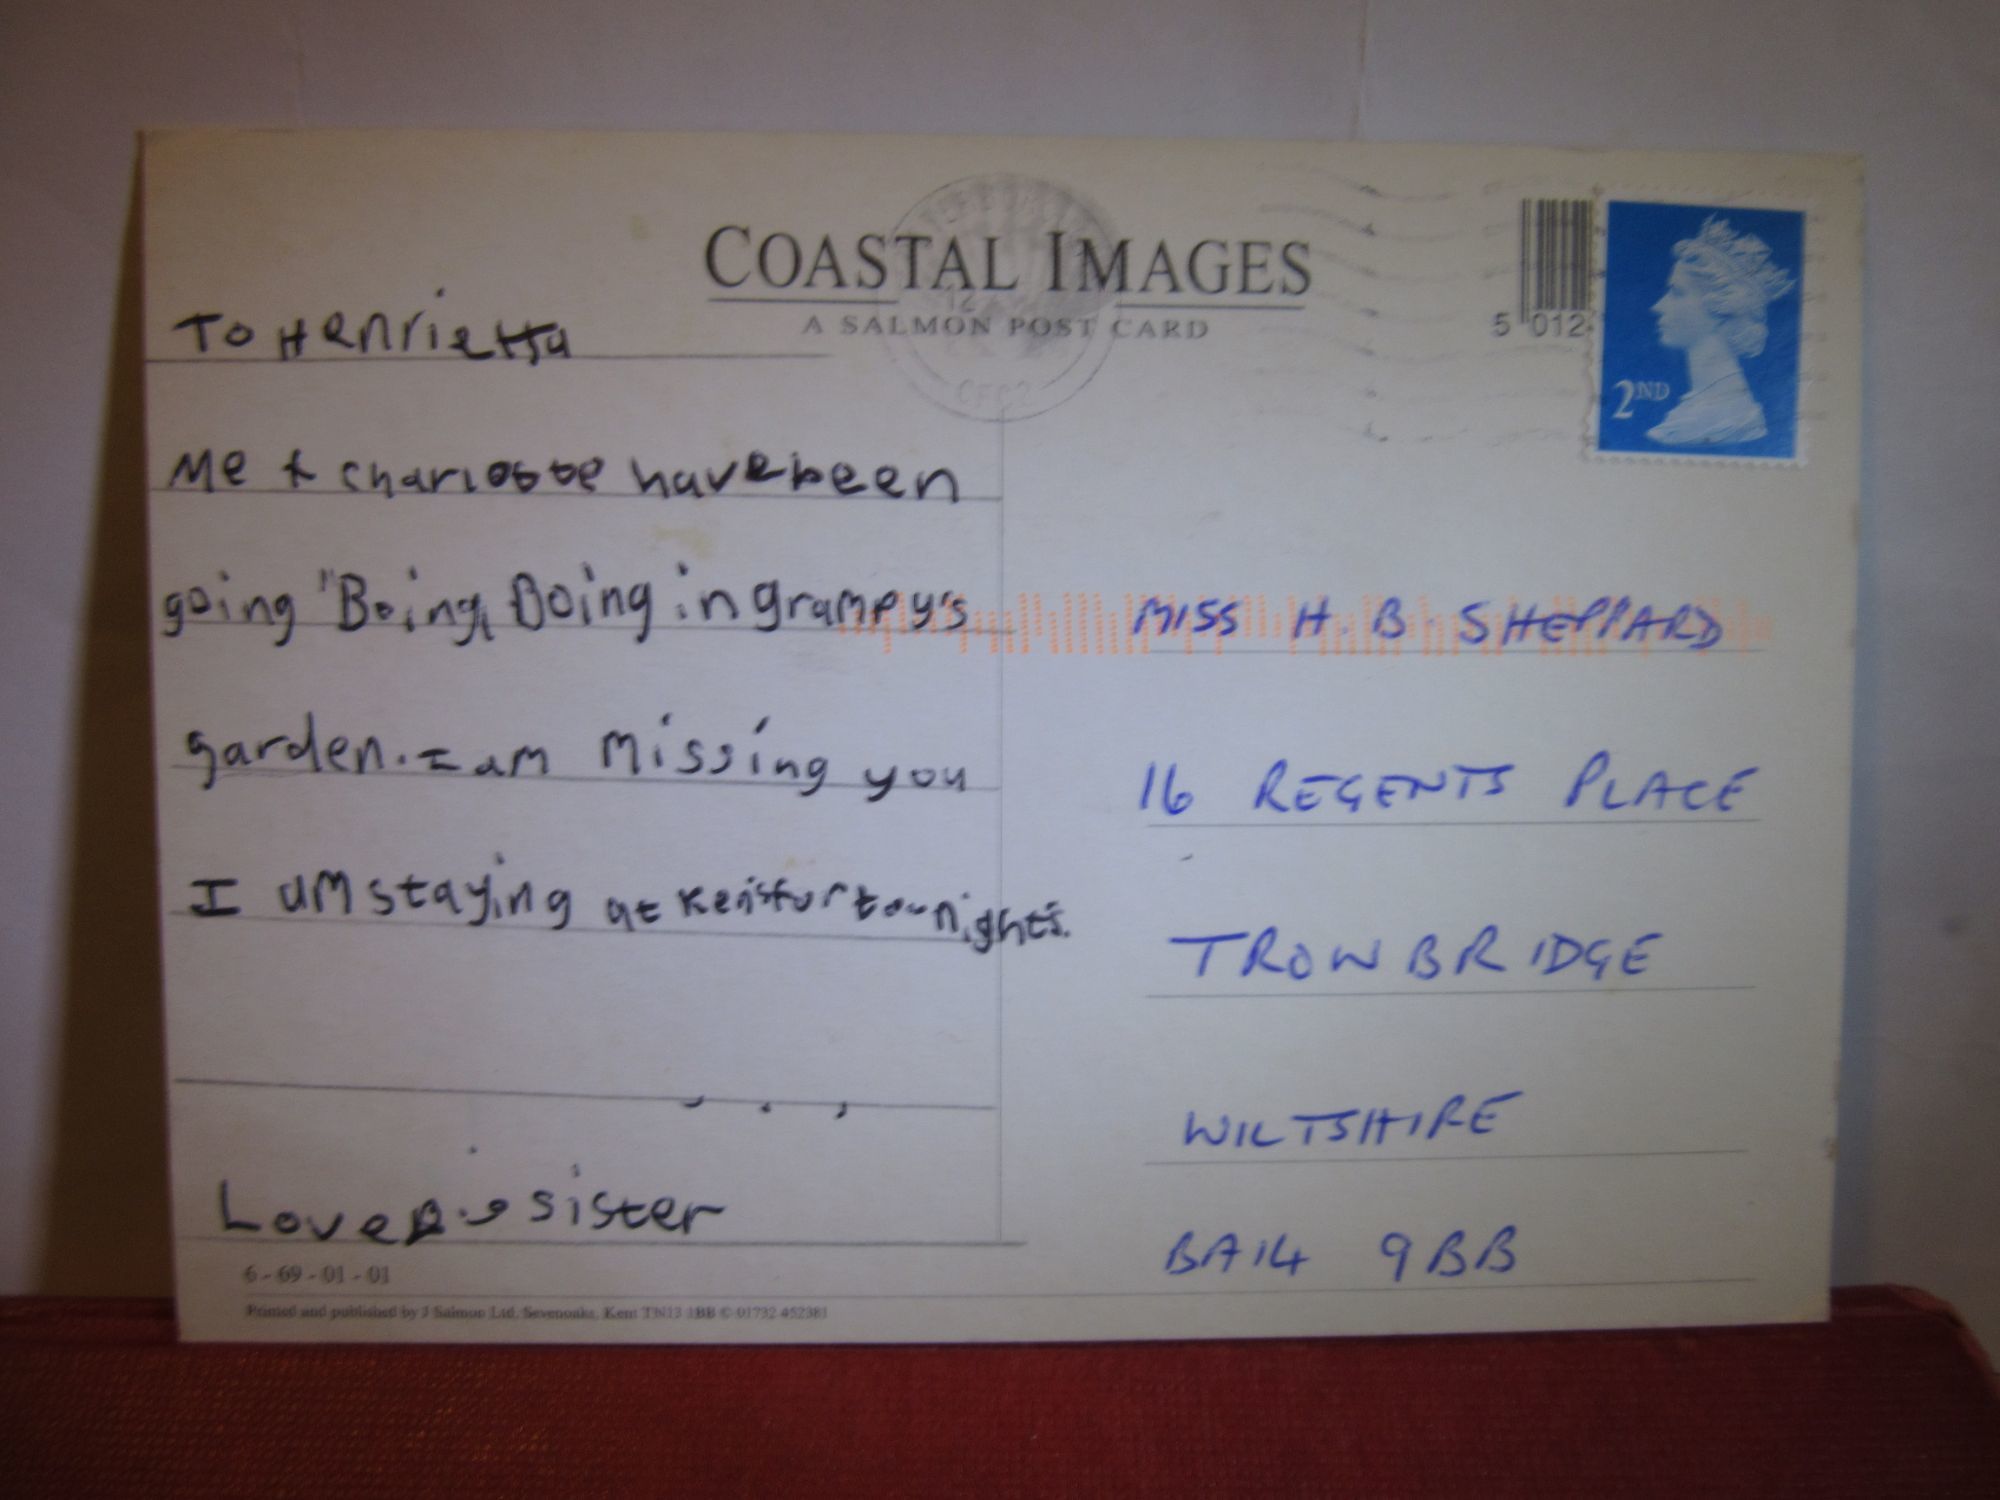 COASTAL IMAGES
A SALMON POST CARD
5 012
2ND
To Henrietta
Me & Charlotte have been
going "Boing, Boing in grampy's
garden. I am missing you
I am staying at Kens for tow nights.
Love Big sister
MISS H. B. SHEPPARD
16 REGENTS PLACE
TROWBRIDGE
WILTSHIRE
BA14 9BB
6 - 69 - 01 - 01
Printed and published by J Salmon Ltd, Sevenoaks, Kent TN13 1BB © 01732 452381